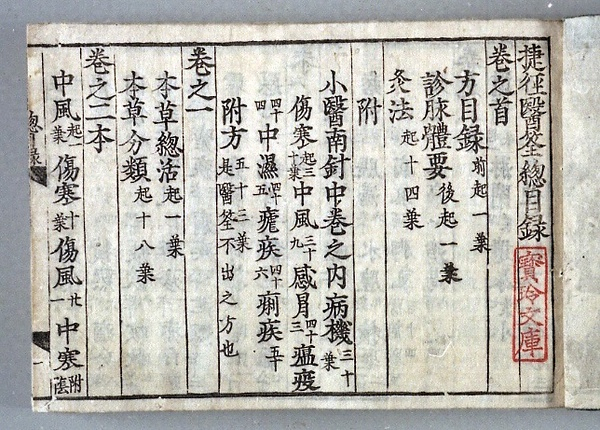 捷径醫筌總目録
寶玲文庫
卷之首
方目録 前起一葉
診脉體要 後起一葉
灸法 起十四葉
附
小醫南針中卷之内病機 三十葉
傷寒 起三十葉 中風 三十九 感冒 四十三 瘟疫
四十四 中濕 四十五 瘧疾 四十六 痢疾 五十
附方 五十三葉 是醫筌不出之方也
卷之一
本草總活 起一葉
本草分類 起十八葉
卷之二本
中風 起一葉 傷寒 十葉 傷風 廿一 中寒 附